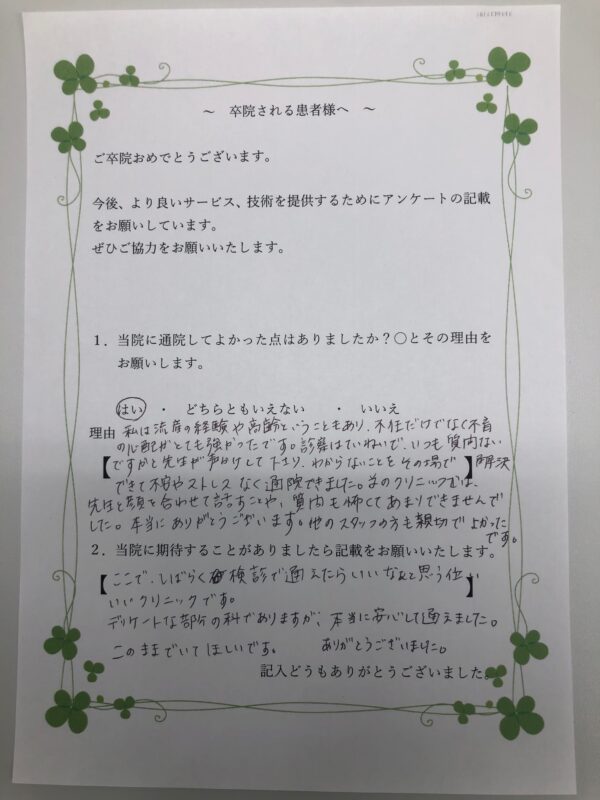 ～　卒院される患者様へ　～
ご卒院おめでとうございます。
今後、より良いサービス、技術を提供するためにアンケートの記載
をお願いしています。
ぜひご協力をお願いいたします。
１．当院に通院してよかった点はありましたか？〇とその理由を
お願いします。
はい　・　どちらともいえない　・　いいえ
理由 私は流産の経験や高齢ということもあり、不妊だけでなく不育
の心配がとても強かったです。診察はていねいで、いつも質問ない
【ですかと先生が声かけして下さり、わからないことをその場で】解決
できて不安やストレスなく通院できました。前のクリニックでは、
先生と顔を合わせて話すことや、質問も怖くてあまりできませんで
した。本当にありがとうございます。他のスタッフの方も親切でよかった
です。
２．当院に期待することがありましたら記載をお願いいたします。
【ここで、しばらく検診で通えたらいいなぁと思う位】
いいクリニックです。
デリケートな部分の科でありますが、本当に安心して通えました。
このままでいてほしいです。　ありがとうございました。
記入どうもありがとうございました。